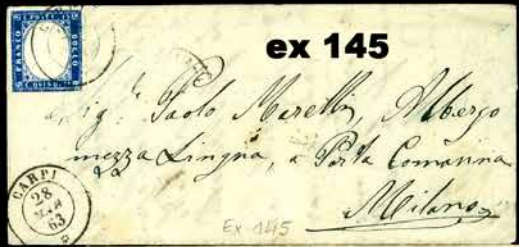 FRANCO
C. POSTE 15
BOLLO
C. QUIND.
ex 145
Sig.r Paolo Morelli, Albergo
mezza Lingua, a Porta Comasina
Milano
CARPI
28
MAR
63
Ex 145